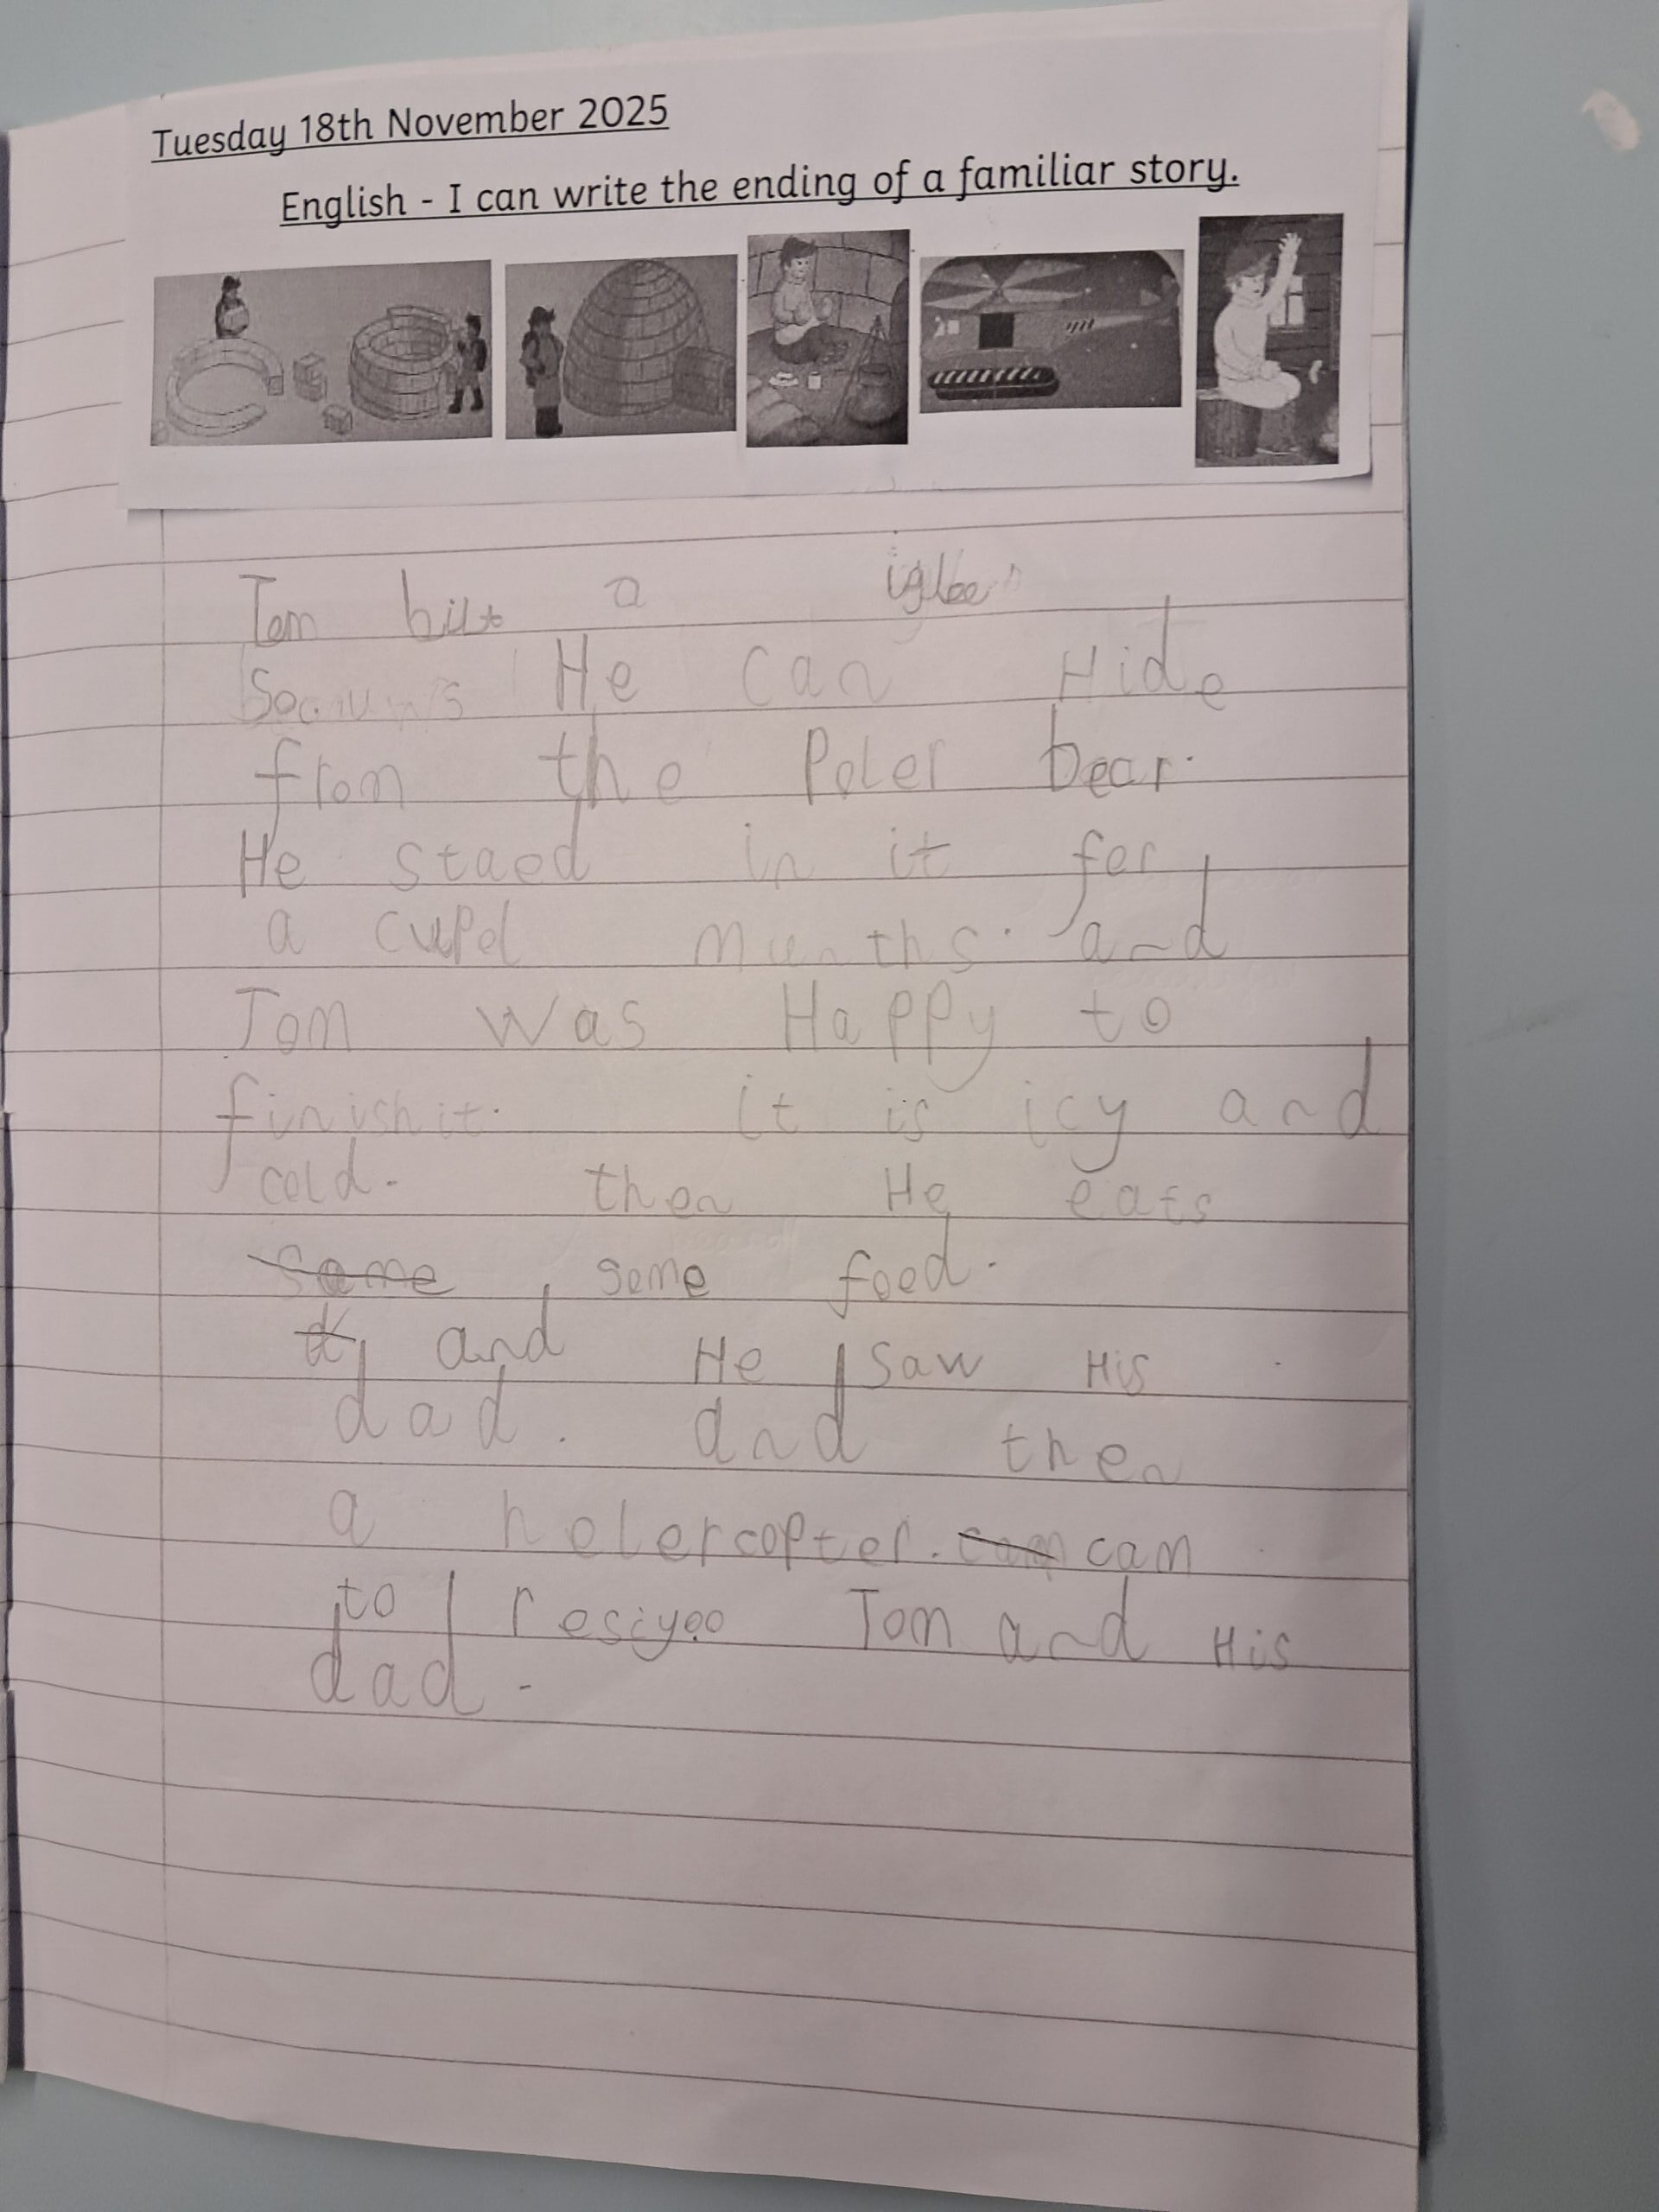 Tuesday 18th November 2025
English - I can write the ending of a familiar story.
Tom bilt a igloo
So He can Hide
from the Poler bear.
He staed in it for
a cupel munths. and
Tom was Happy to
finish it. it is icy and
cold. then He eats
some some food.
and He saw His
dad. and then
a helercopter. cam cam
to resiyoo Tom and His
dad.